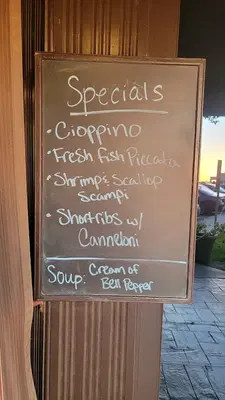 Specials
• Cioppino
• Fresh Fish Piccata
• Shrimp & Scallop
Scampi
• Shortribs w/
Canneloni
Soup: Cream of
Bell Pepper